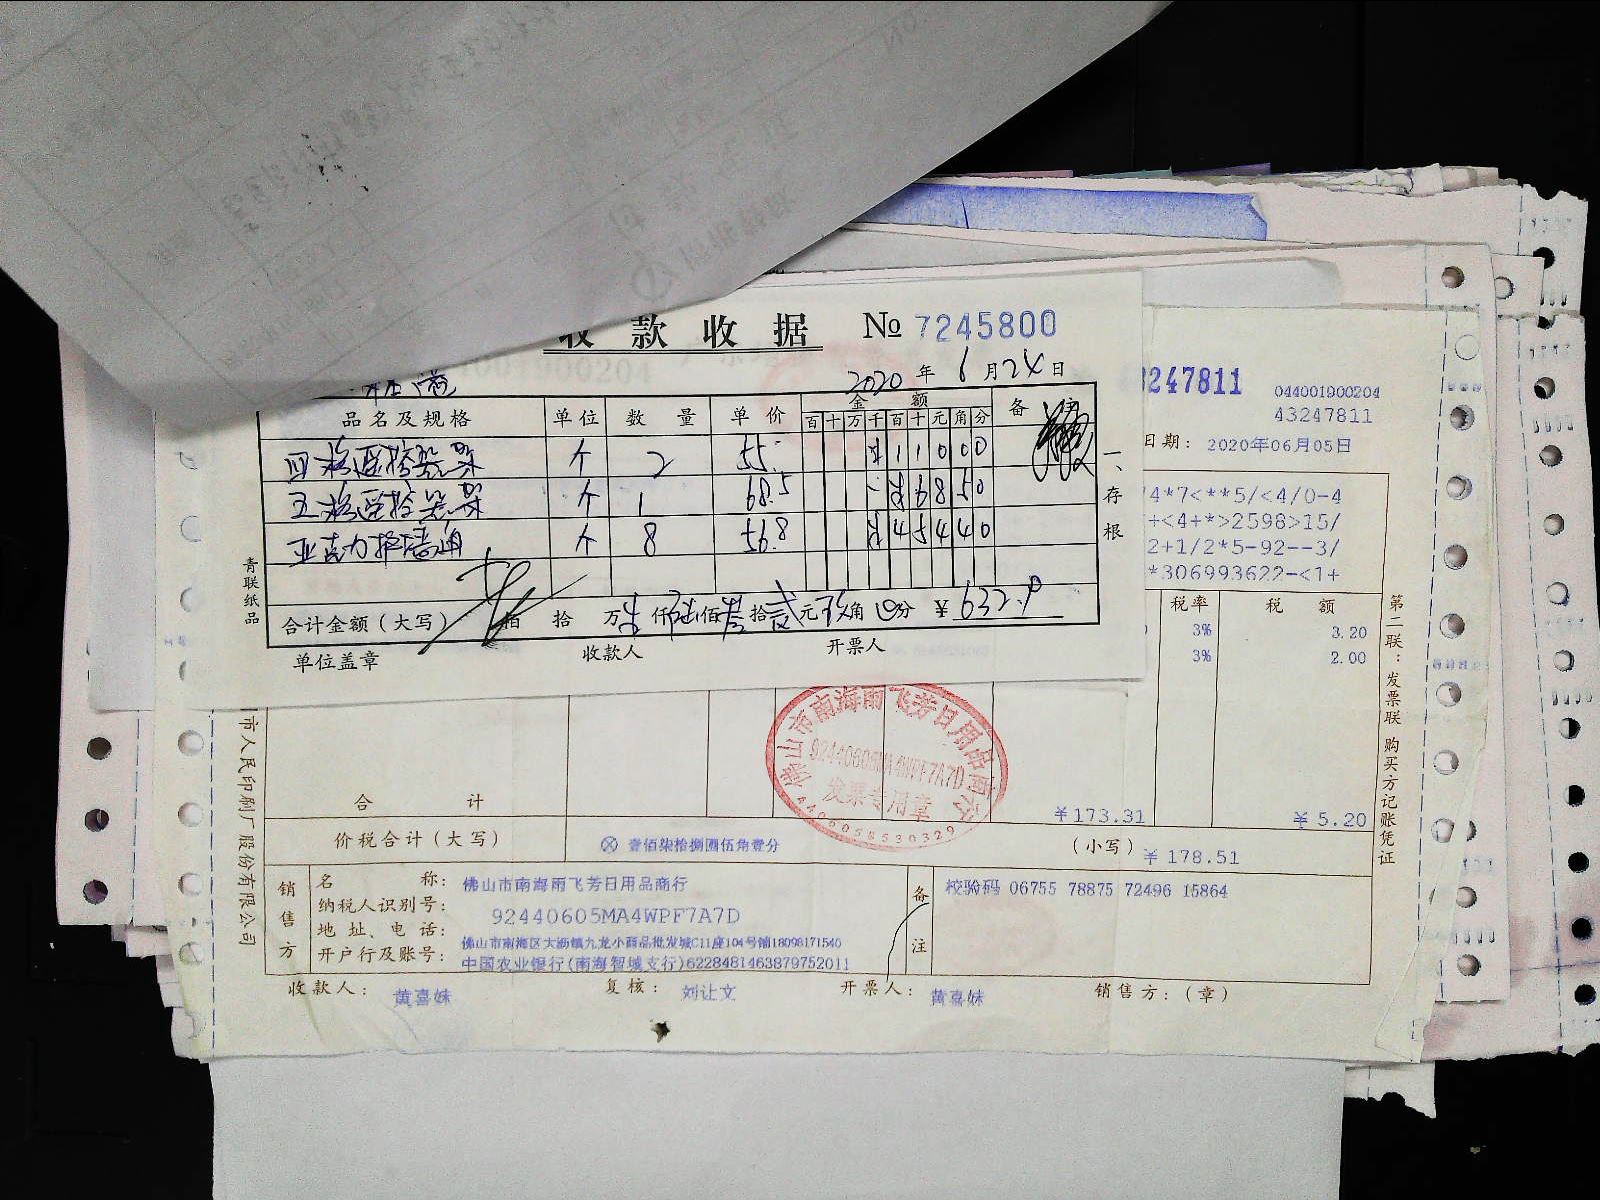 收款收据 № 7245800
2020 年 6 月 24 日
品名及规格 单位 数量 单价 金额 备
百 十 万 千 百 十 元 角 分
个 2 55. ¥ 1 1 0 0 0
个 1 68.5 ¥ 6 8 5 0
个 8 56.8 ¥ 4 5 4 4 0
合计金额(大写) 佰 拾 万 仟 陆 佰 叁 拾 贰 元 玖 角 分 ¥ 632.9
单位盖章 收款人 开票人
一、存根
青联纸品
3247811
044001900204
43247811
日期: 2020年06月05日
/4*7<**5/<4/0-4
+<4+*>2598>15/
2+1/2*5-92--3/
*306993622-<1+
税率 税额
3% 3.20
3% 2.00
合计 ¥173.31 ¥5.20
价税合计(大写) ⊗ 壹佰柒拾捌圆伍角壹分 (小写) ¥178.51
销售方
名称: 佛山市南海雨飞芳日用品商行
纳税人识别号: 92440605MA4WPF7A7D
地址、电话: 佛山市南海区大沥镇九龙小商品批发城C11座104号铺18098171540
开户行及账号: 中国农业银行(南海智城支行)6228481463879752011
备注
校验码 06755 78875 72496 15864
收款人: 黄喜妹 复核: 刘让文 开票人: 黄喜妹 销售方: (章)
第二联:发票联 购买方记账凭证
市人民印刷厂股份有限公司
佛山市南海雨飞芳日用品商行
92440605MA4WPF7A7D
发票专用章
4406058530329